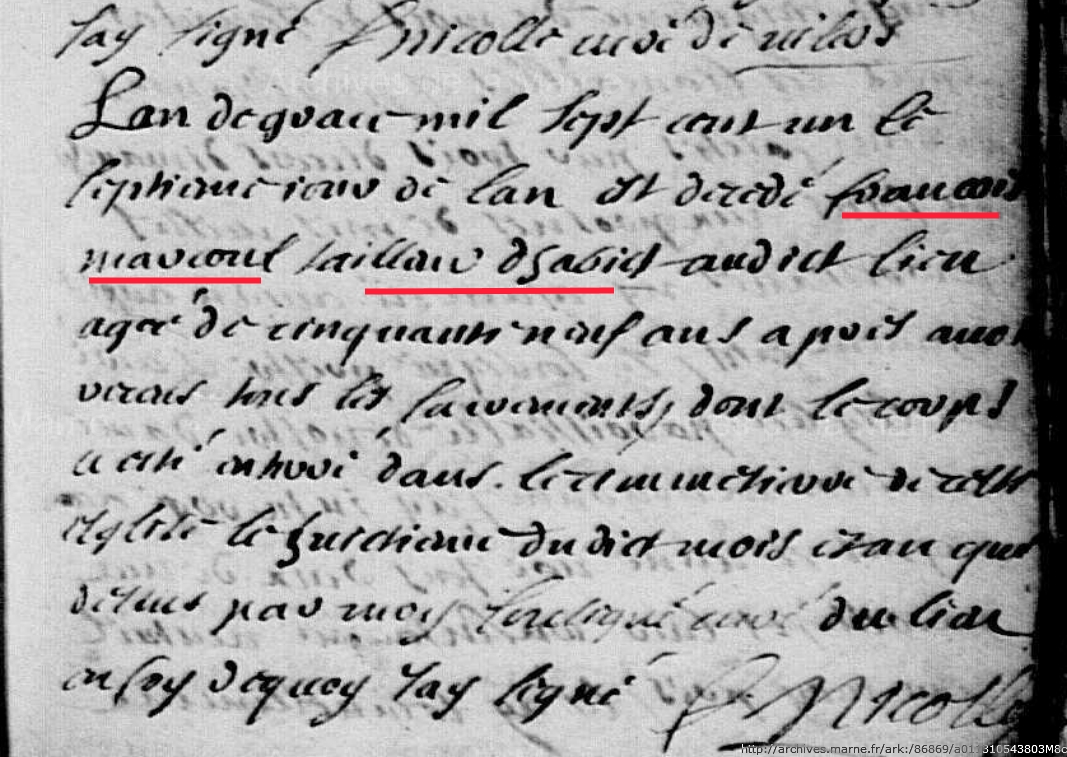 Jay signé J nicolle curé de
Lan de grace mil sept cent un le
septieme jour de lan est decedé francois
marcoul tailleur dhabict audict lieu
agée de cinquante neuf ans apres avoir
receus tous les sacrements, dont le corps
a esté enterré dans le cimmetierre de cette
esglise le huictieme dudict mois et an que
dessus par moy soubsigné curé du lieu
en foy dequoy Jay signé J Nicolle
http://archives.marne.fr/ark:/86869/a011310543803M8c